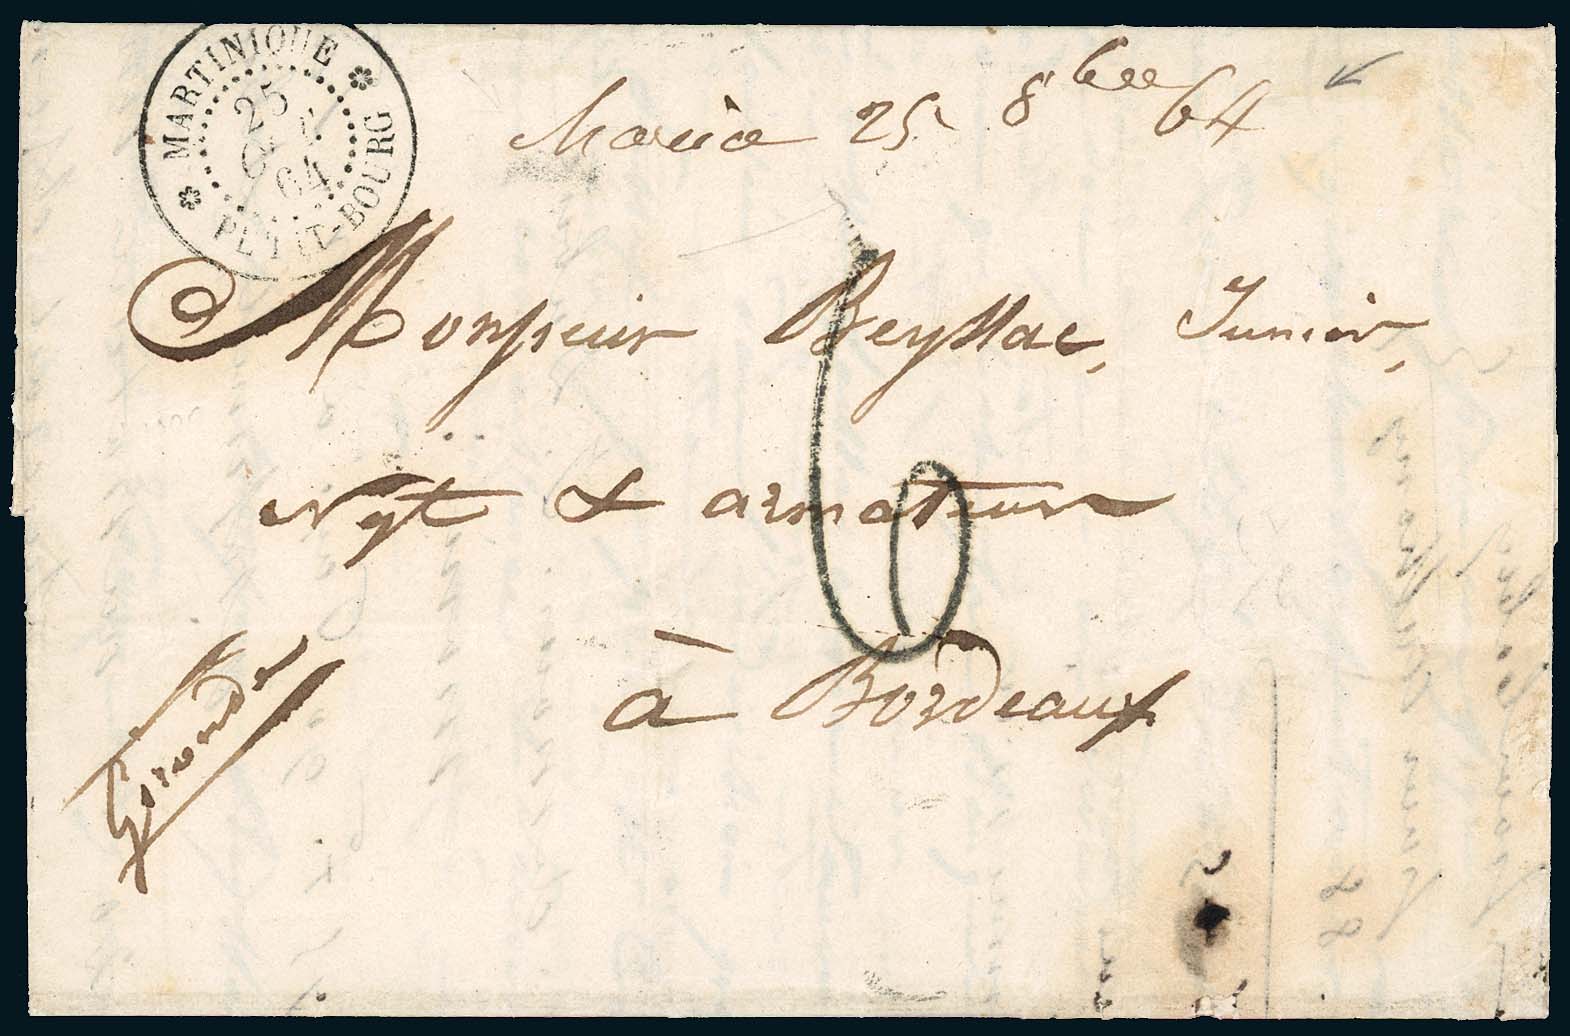 MARTINIQUE
25
OCT
64
PETIT-BOURG
25 8bre 64
Monsieur Beyssac, Junior,
Ngt & armateur
6
à Bordeaux
Gironde